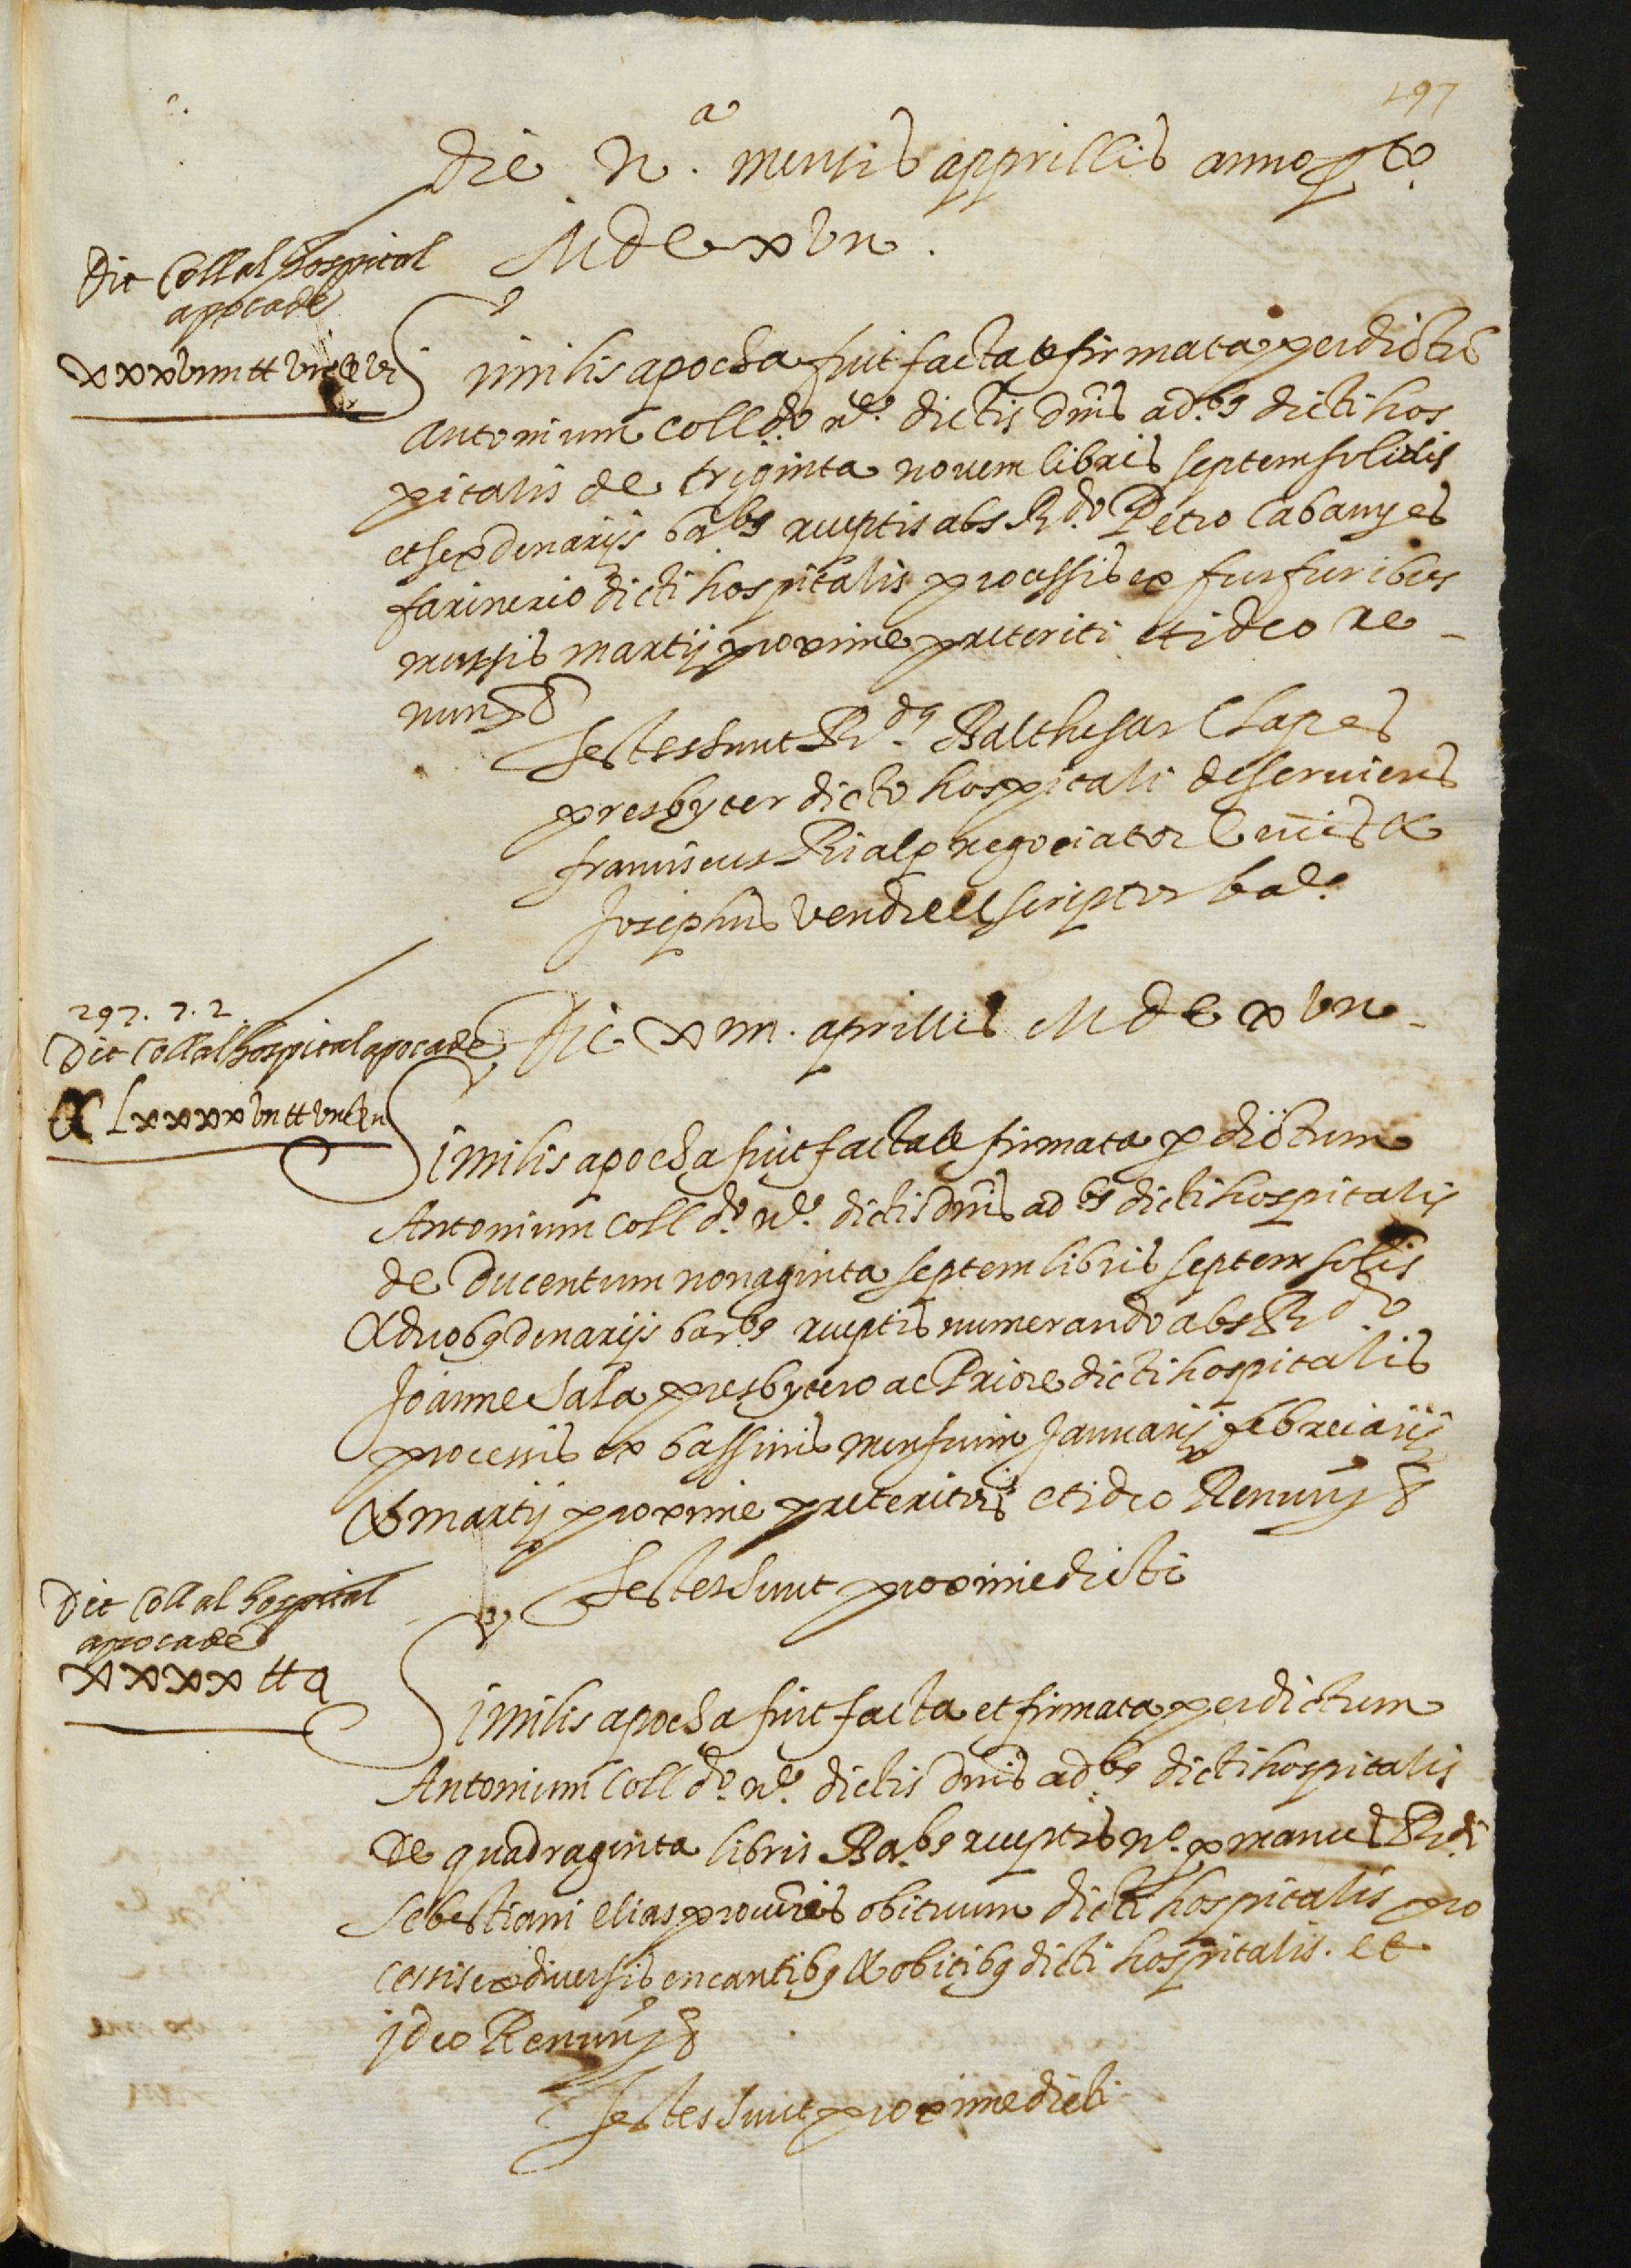 197
Die ii.a mensis apprillis anno p.to
MDCxvii.
Dit Coll al hospital
apoca de
xxxviiii tt vii s vi
Similis apocha fuit facta et firmata per dictū
Antonium Coll d.o n.e dictis dnis ad.bs dicti hos
pitalis de triginta novem libris septem solidis
et sex denarijs bar.bs receptis abs R.do Petro Cabanyes
farinerio dicti hospitalis processis ex furfuribus
mensis martij proxime preteriti et ideo re-
nun &
Testes sunt R.dus Balthesar Clapes
presbyter dicto hospitali deserviens
franciscus Rialp negociator Civis &
Josephus Vendrell scriptor ba.e
297. 7. 2.
Dit Coll al hospital apoca de
CC Lxxxxvii tt vii s ii
Die xiiii. aprillis MDCxvii-
Similis apocha fuit facta et firmata p dictum
Antonium Coll d.o n.e dictis dnis ad.bs dicti hospitalis
de Ducentum nonaginta septem libris septem solis
& duobus denarijs bar.bs receptis numerando abs R.do
Joanne Sala presbytero ac Priore dicti hospitalis
processis ex bassinis mensium Januarij febreiarij
& martij proxime preteritis et ideo Renun &
Testes sunt proxime dicti
Dit Coll al hospital
apoca de
xxxx tt
Similis apocha fuit facta et firmata per dictum
Antonium Coll d.o n.e dictis dnis ad.bs dicti hospitalis
de quadraginta libris Bar.bs receptis n.o p manus R.di
Sebestiani elias procuris obituum dicti hospitalis pro
cessis ex diversis encantibus & obitibus dicti hospitalis. et
ideo Renun &
Testes sunt proxime dicti